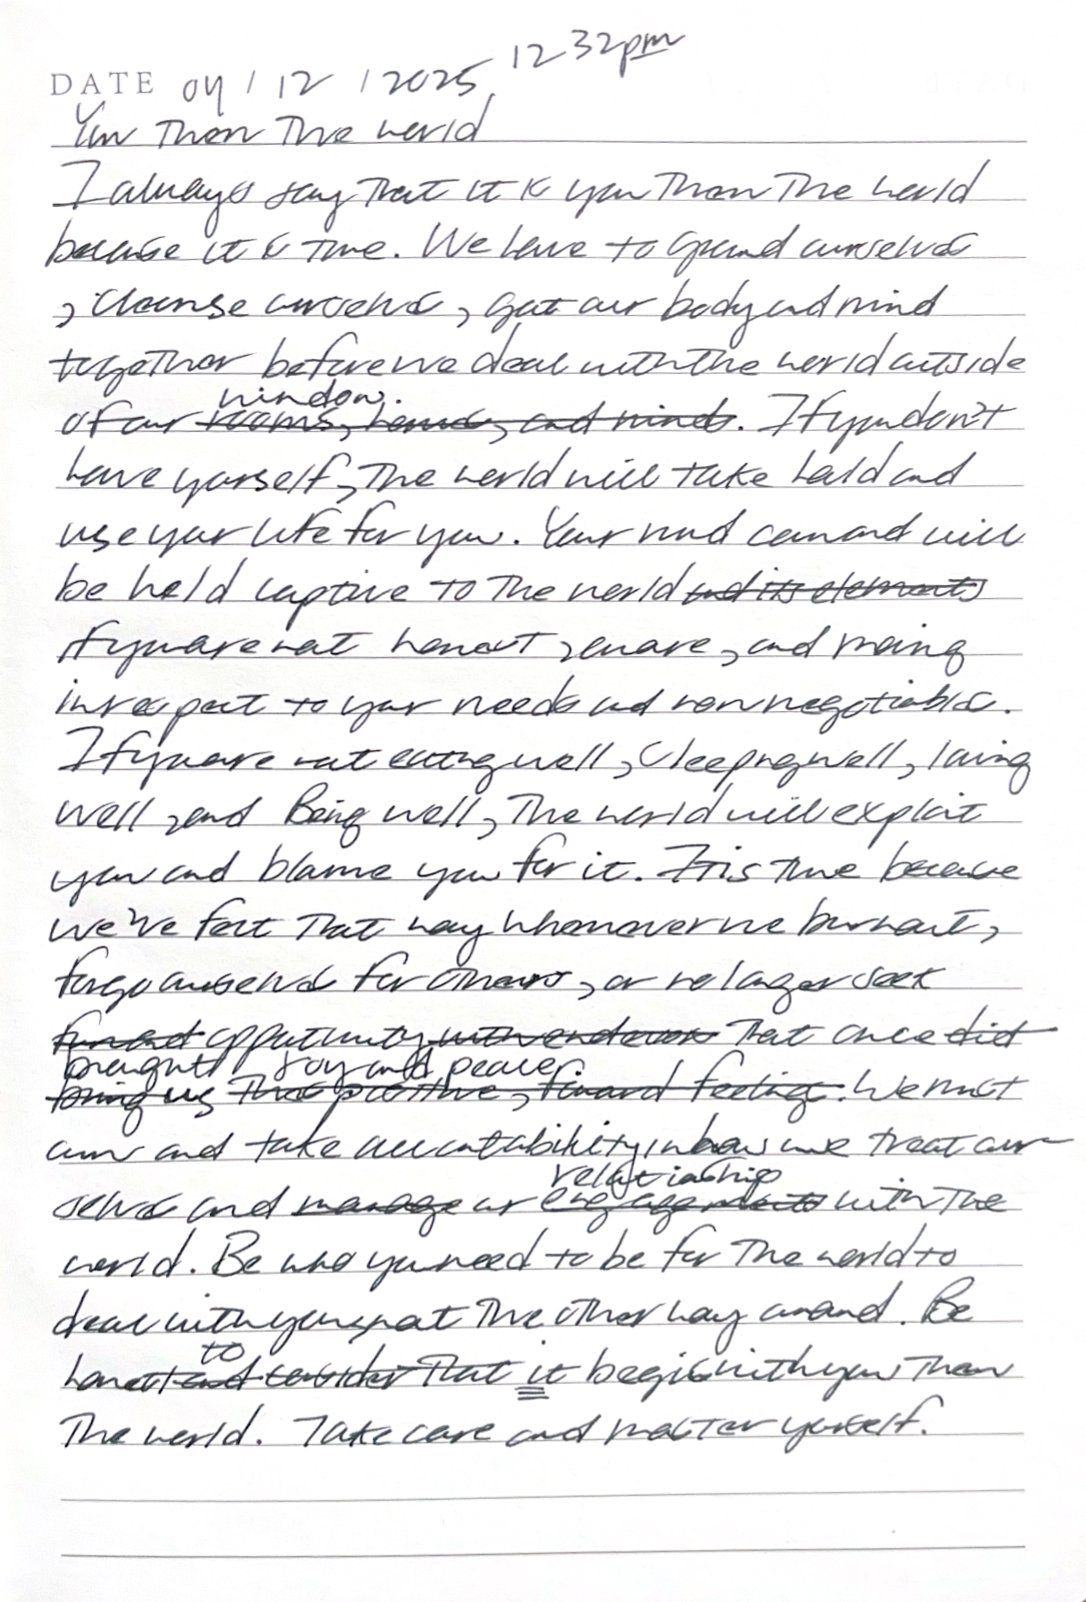 DATE 04 / 12 / 2025, 12 32pm
You Then The World
I always say that it is you then the world
because it is true. We have to ground ourselves
, cleanse ourselves, get our body and mind
together before we deal with the world outside
of our rooms, homes, and minds. window. If you don't
have yourself, the world will take hold and
use your life for you. Your mind command will
be held captive to the world and its elements
if you are not honest, aware, and moving
in respect to your needs and non negotiables.
If you are not eating well, sleeping well, living
well, and Being well, the world will exploit
you and blame you for it. It is true because
we've felt that way whenever we burnout,
forgo ourselves for others, or no longer seek
opportunity that once did
brought joy and peace.
bring us that positive, forward feelings. We must
own and take accountability in how we treat our
selves and manage our engagements relationship with the
world. Be who you need to be for the world to
deal with you, not the other way around. Be
honest and consider to that it begins with you then
the world. Take care and master yourself.